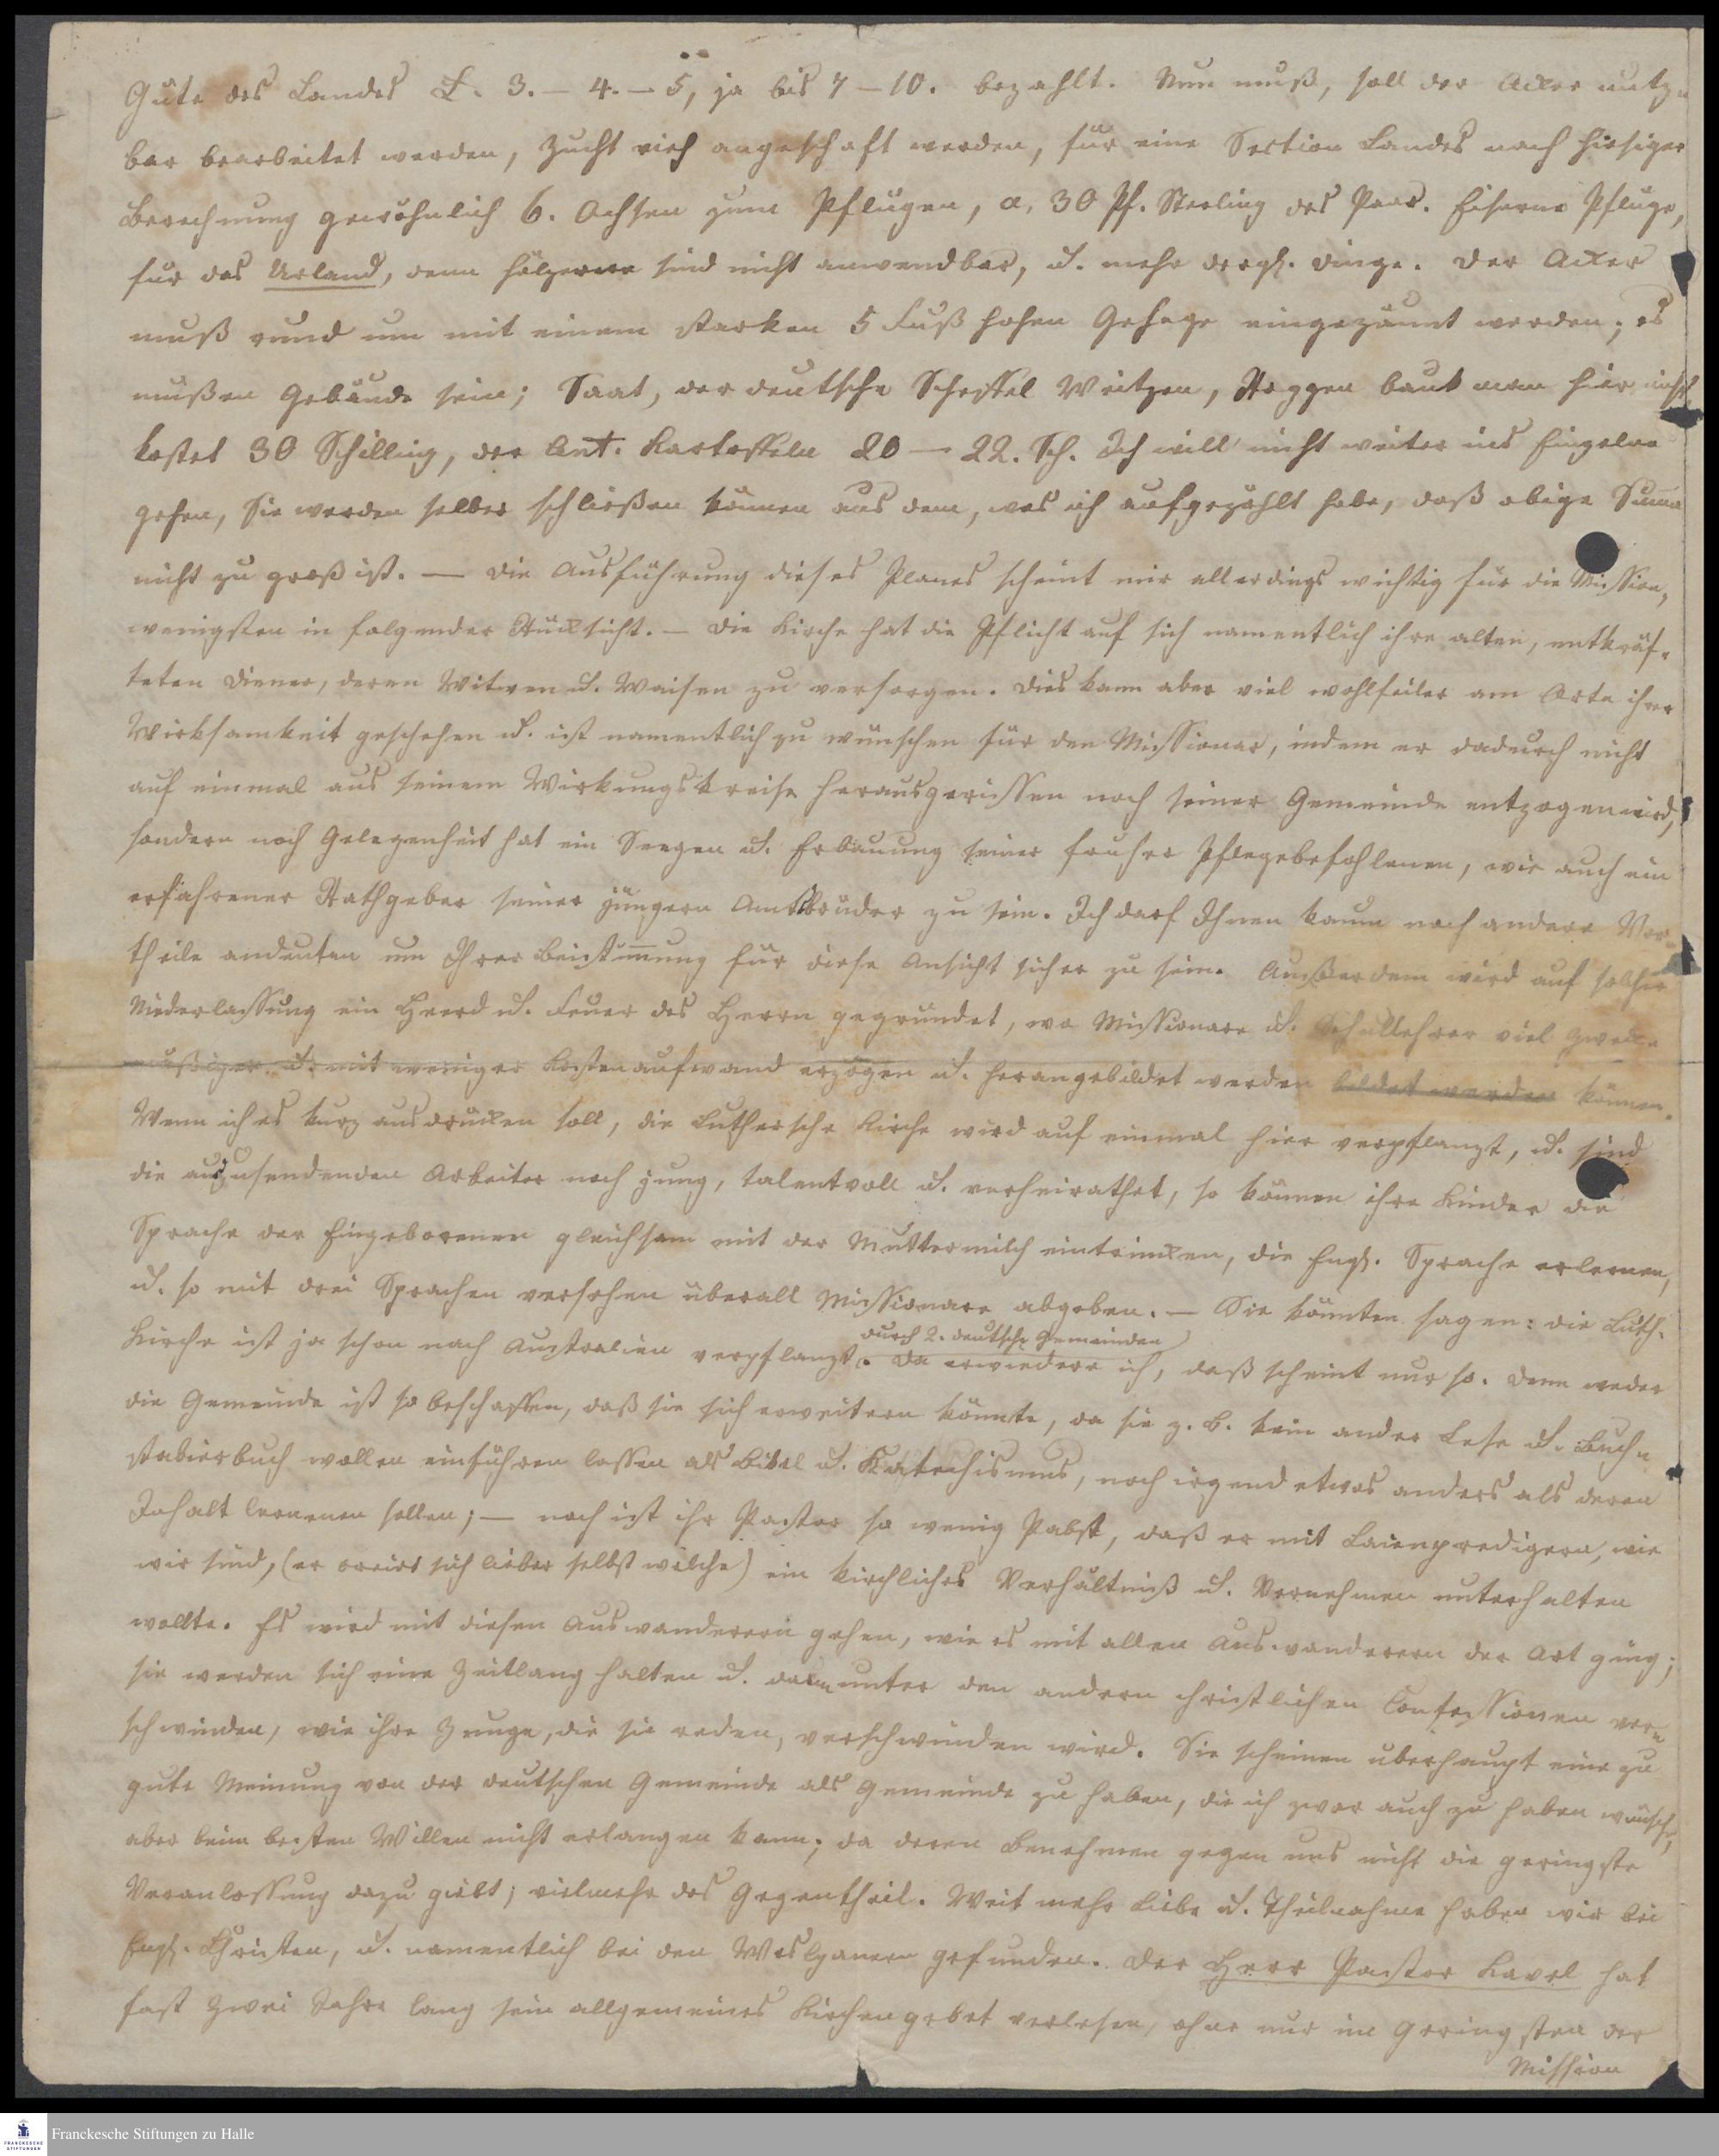 Güte des Landes £. 3. – 4. – 5, ja bis 7 – 10. bezahlt. Nun muß, soll der Acker nutz-
bar bearbeitet werden, Zucht vieh angeschaft werden, für eine Section Landes nach hiesiger
Berechnung gewöhnlich 6. Ochsen zum Pflügen, a. 30 Pf. Sterling das Paar. Eiserne Pflüge,
für das Urland, denn hölzerne sind nicht anwendbar, u. mehr dergl. Dinge. Der Acker
muß rund um mit einem starken 5 Fuß hohen Gehege eingezäunt werden; es
müßen Gebäude sein; Saat, der deutsche Scheffel Weitzen, Roggen baut man hier nicht
kostet 30 Schilling, der Cnt. Kartoffeln 20 – 22. Sch. Ich will nicht weiter ins Einzelne
gehen, Sie werden selber schließen können aus dem, was ich aufgezählt habe, daß obige Summa
nicht zu groß ist. — Die Ausführung dieses Planes scheint mir allerdings wichtig für die Mission,
wenigsten in folgender Rücksicht. – Die Kirche hat die Pflicht auf sich namentlich ihre alten, entkräf-
teten Diener, deren Witwen u. Waisen zu versorgen. Dies kann aber viel wohlfeiler am Orte ihrer
Wirksamkeit geschehen u. ist namentlich zu wünschen für den Missionar, indem er dadurch nicht
auf einmal aus seinem Wirkungskreise herausgerissen noch seiner Gemeinde entzogen wird,
sondern noch Gelegenheit hat ein Seegen u. Erbauung seiner früher Pflegebefohlenen, wie auch ein
erfahrener Rathgeber seiner jüngern Amtsbrüder zu sein. Ich darf Ihnen kaum noch andere Vor-
theile andeuten um Ihrer Beistimmung für diese Ansicht sicher zu sein. Außerdem wird auf solcher
Niederlassung ein Heerd u. Feuer des Herrn gegründet, wo Missionare u. Schullehrer viel zweck-
mäßiger u. mit weniger Kostenaufwand erzogen u. herangebildet werden bildet werden können.
Wenn ich es kurz ausdrücken soll, die Luthersche Kirche wird auf einmal hier verpflanzt, u. sind
die auszusendenden Arbeiter noch jung, talentvoll u. verheirathet, so können ihre Kinder die
Sprache der Eingeborenen gleichsam mit der Muttermilch eintrinken, die Engl. Sprache erlernen,
u. so mit drei Sprachen versehen überall Missionare abgeben. – Sie könnten sagen: die Luth.
durch 2. deutsche Gemeinden
Kirche ist ja schon nach Australien verpflanzt. Da erwiedere ich, daß scheint nur so. Denn weder
die Gemeinde ist so beschaffen, daß sie sich erweitern könnte, da sie z. B. kein ander Lese u. Buch-
stabierbuch wollen einführen lassen als Bibel u. Katechismus, noch irgend etwas anders als deren
Inhalt lernen sollen; — noch ist ihr Pastor so wenig Pabst, daß er mit Laienpredigern, wie
wir sind, (er creirt sich lieber selbst welche) ein kirchliches Verhältniß u. Vernehmen unterhalten
wollte. Es wird mit diesen Auswanderern gehen, wie es mit allen Auswanderern der Art ging;
sie werden sich eine Zeitlang halten u. dann unter den andern christlichen Confessionen ver-
schwinden, wie ihre Zunge, die sie reden, verschwinden wird. Sie scheinen überhaupt eine zu
gute Meinung von der deutschen Gemeinde als Gemeinde zu haben, die ich zwar auch zu haben wünsche,
aber beim besten Willen nicht erlangen kann; da deren Benehmen gegen uns nicht die geringste
Veranlassung dazu giebt; vielmehr das Gegentheil. Weit mehr Liebe u. Theilnahme haben wir bei
Engl. Christen, u. namentlich bei den Weslyanern gefunden. Der Herr Pastor Kavel hat
fast zwei Jahre lang sein allgemeines Kirchengebet verlesen, ohne nur im Geringsten der
Mission
Franckesche Stiftungen zu Halle
FRANCKESCHE
STIFTUNGEN